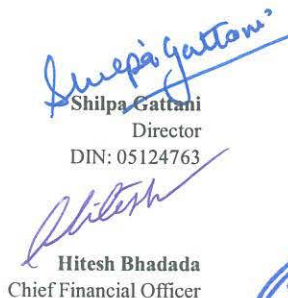 Shilpa Gattani
Shilpa Gattani
Director
DIN: 05124763
Hitesh
Hitesh Bhadada
Chief Financial Officer